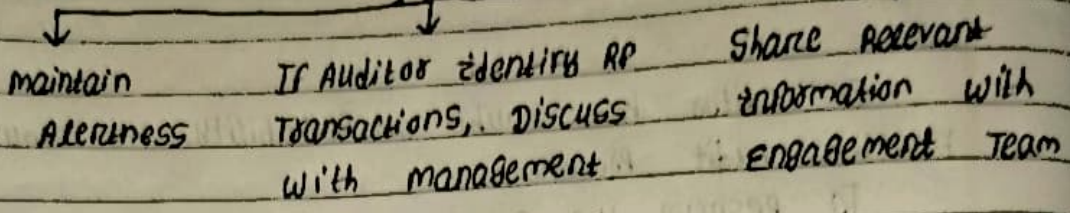 maintain
Alertness
If Auditor identify RP
Transactions, Discuss
with management
Share Relevant
information with
Engagement Team